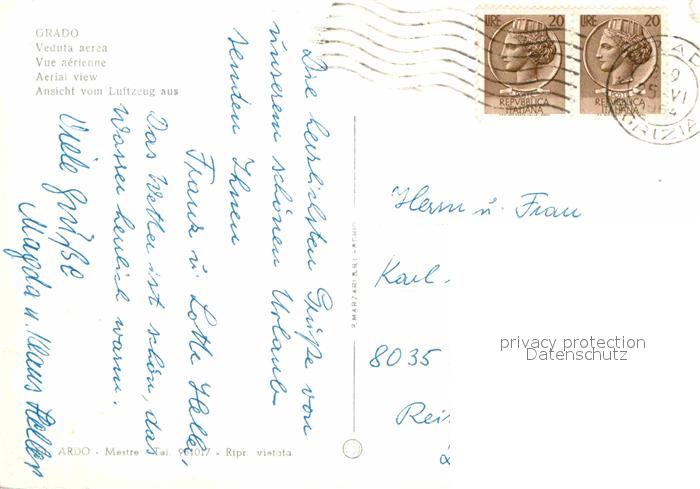 GRADO
Veduta aerea
Vue aérienne
Aerial view
Ansicht vom Luftzeug aus
Die herzlichsten Grüße von
unserem schönen Urlaub
senden Ihnen
Franz u. Lotte Heller,
Das Wetter ist schön, das
Wasser herrlich warm.
Viele Grüße
Magda u. Klaus Heller
ARDO - Mestre - Tel. 981017 - Ripr. vietata
LIRE 20
POSTE
REPVBBLICA
ITALIANA
LIRE 20
POSTE
REPVBBLICA
ITALIANA
Herrn u. Frau
Karl.
8035
Rei
privacy protection
Datenschutz